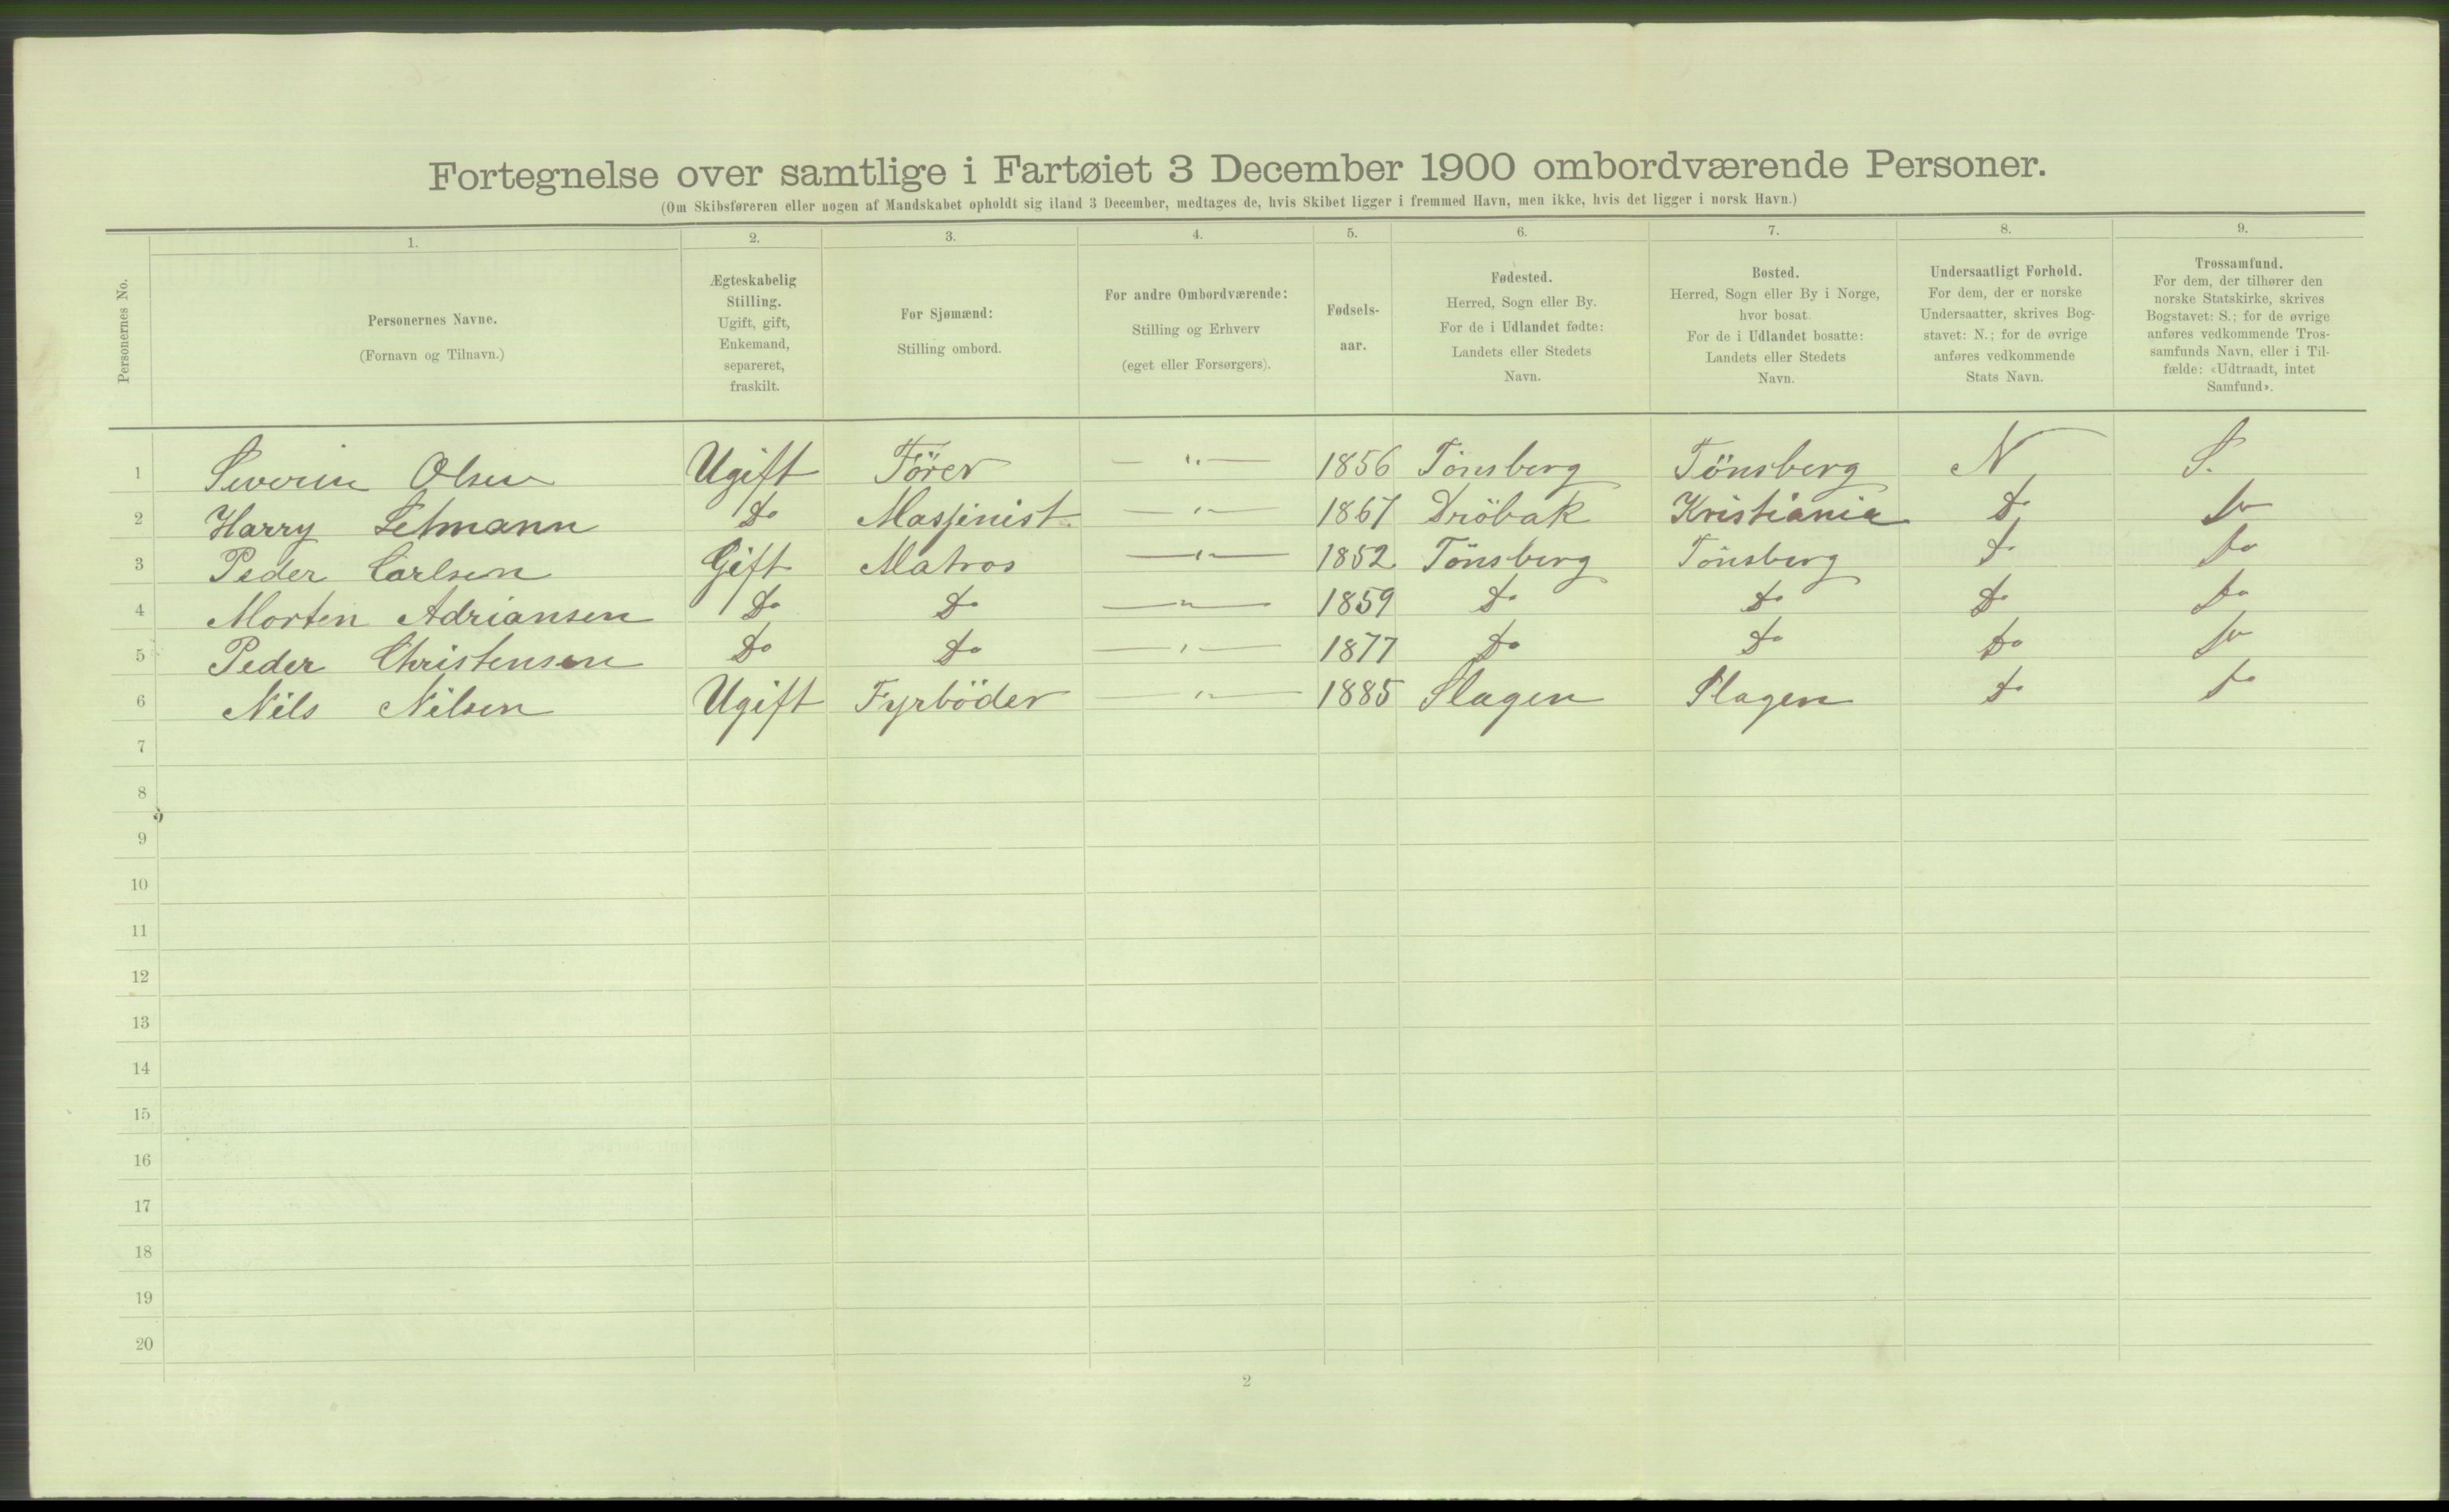 Fortegnelse over samtlige i Fartøiet 3 December 1900 ombordværende Personer.
(Om Skibsføreren eller nogen af Mandskabet opholdt sig iland 3 December, medtages de, hvis Skibet ligger i fremmed Havn, men ikke, hvis det ligger i norsk Havn.)
Personernes No.
1.
Personernes Navne.
(Fornavn og Tilnavn.)
2.
Ægteskabelig
Stilling.
Ugift, gift,
Enkemand,
separeret,
fraskilt.
3.
For Sjømænd:
Stilling ombord.
4.
For andre Ombordværende:
Stilling og Erhverv
(eget eller Forsørgers).
5.
Fødsels-
aar.
6.
Fødested.
Herred, Sogn eller By.
For de i Udlandet fødte:
Landets eller Stedets
Navn.
7.
Bosted.
Herred, Sogn eller By i Norge,
hvor bosat.
For de i Udlandet bosatte:
Landets eller Stedets
Navn.
8.
Undersaatligt Forhold.
For dem, der er norske
Undersaatter, skrives Bog-
stavet: N.; for de øvrige
anføres vedkommende
Stats Navn.
9.
Trossamfund.
For dem, der tilhører den
norske Statskirke, skrives
Bogstavet: S.; for de øvrige
anføres vedkommende Tros-
samfunds Navn, eller i Til-
fælde: «Udtraadt, intet
Samfund».
1 Severin Olsen Ugift Förer — " — 1856 Tönsberg Tönsberg N S.
2 Harry Letmann Do Masjinist — " — 1867 Dröbak Kristiania Do Do
3 Peder Carlsen Gift Matros — " — 1852 Tönsberg Tönsberg Do Do
4 Morten Adriansen Do Do — " — 1859 Do Do Do Do
5 Peder Christensen Do Do — " — 1877 Do Do Do Do
6 Nils Nilsen Ugift Fyrböder — " — 1885 Slagen Slagen Do Do
7
8
9
10
11
12
13
14
15
16
17
18
19
20
2